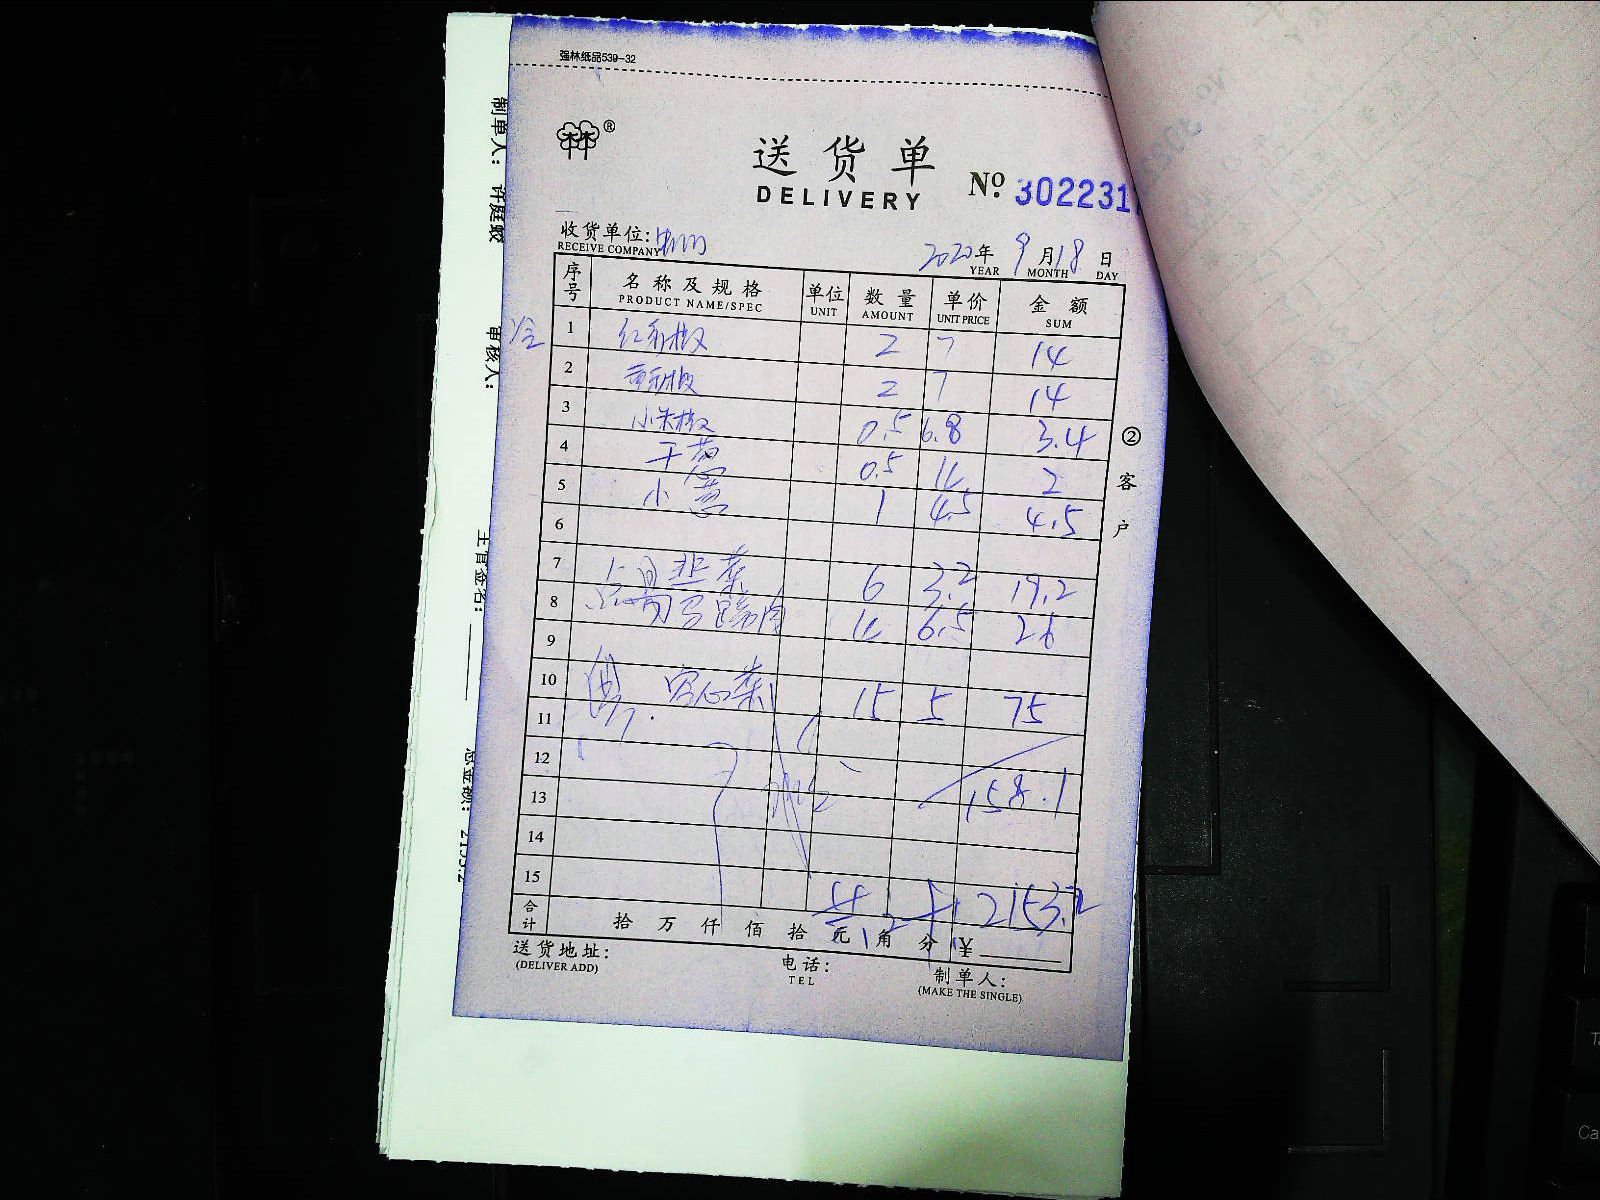 强林纸品539-32
林®
送货单
DELIVERY
№ 3022231
收货单位:
RECEIVE COMPANY
2020年 9月18日
YEAR MONTH DAY
序号 名称及规格 单位 数量 单价 金额
PRODUCT NAME/SPEC UNIT AMOUNT UNIT PRICE SUM
1 红彩椒 2 7 14
2 黄彩椒 2 7 14
3 小米椒 0.5 6.8 3.4
4 干葱 0.5 4 2
5 小葱 1 4.5 4.5
6
7 韭菜 6 3.2 19.2
8 马蹄肉 4 6.5 26
9
10 空心菜 15 5 75
11
12
13 158.1
14
15
2153.2
合计 拾 万 仟 佰 拾 元 角 分 ¥
送货地址:
(DELIVER ADD)
电话:
TEL
制单人:
(MAKE THE SINGLE)
②客户
制单人: 许庭毅
审核人:
主管签名:
总金额: 2153.2